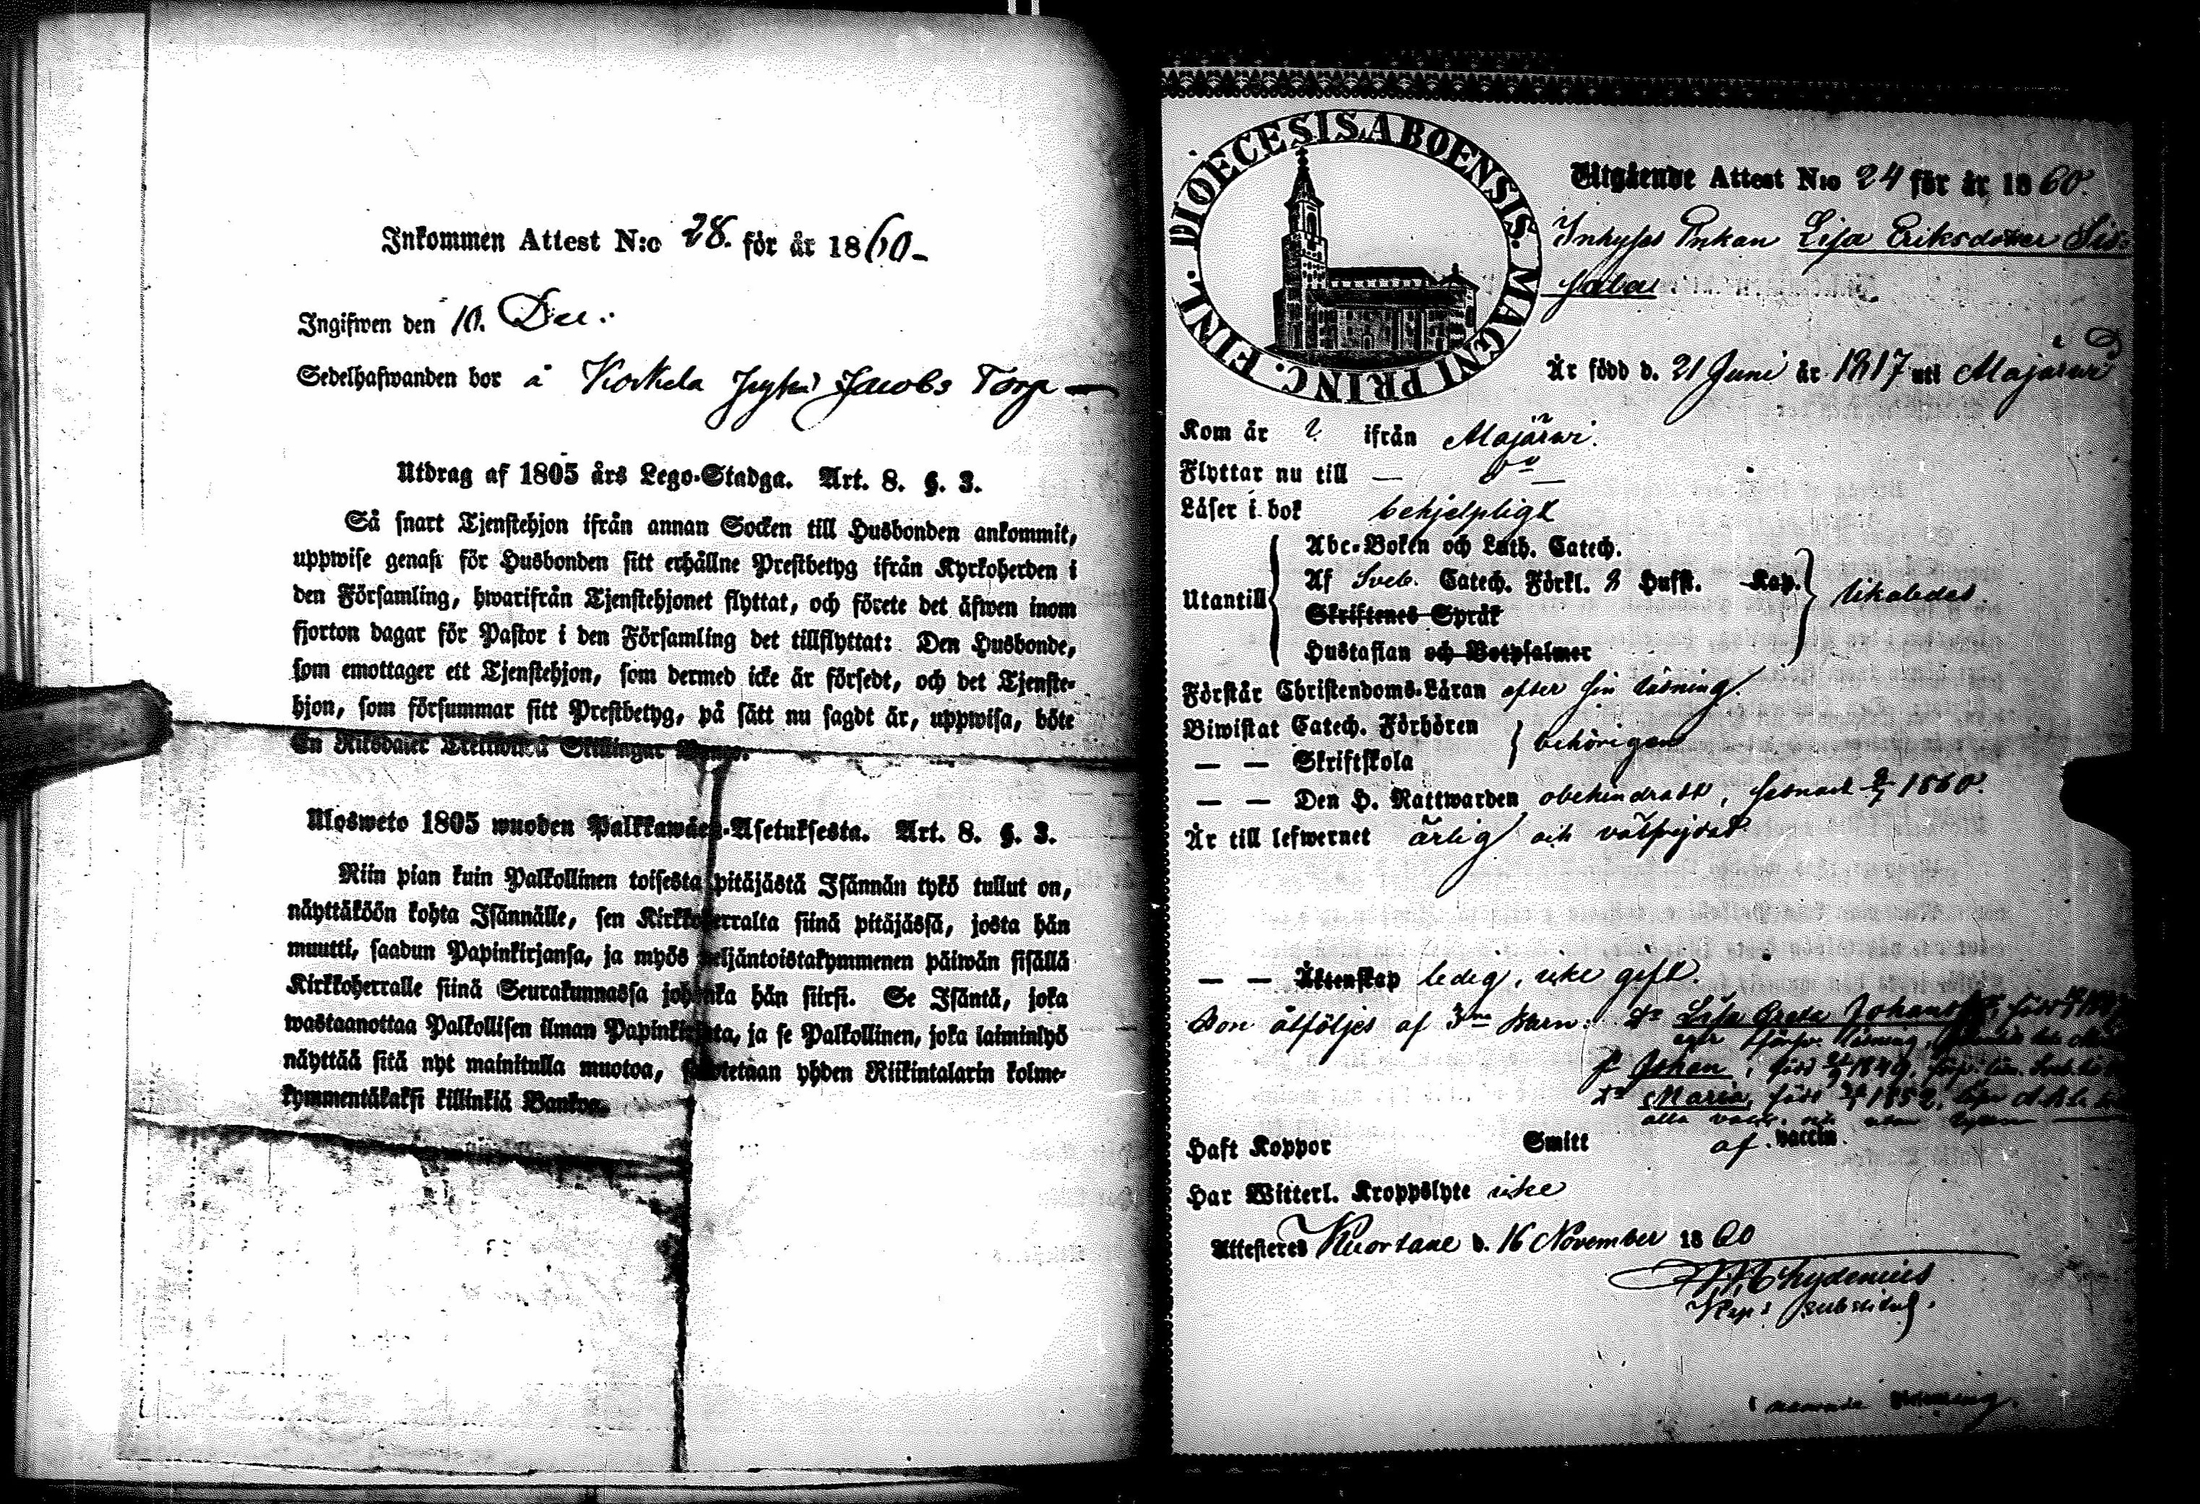 Inkommen Attest N:o 28. för år 1860-
Ingifwen den 10. Dec.
Sedelhafwanden bor å Korkela Jacobs Torp
Utdrag af 1805 års Lego-Stadga. Art. 8. §. 3.
Så snart Tjenstehjon ifrån annan Socken till Husbonden ankommit,
uppwise genast för Husbonden sitt erhållne Prestbetyg ifrån Kyrkoherden i
den Församling, hwarifrån Tjenstehjonet flyttat, och förete det äfwen inom
fjorton dagar för Pastor i den Församling det tillflyttat: Den Husbonde,
som emottager ett Tjenstehjon, som dermed icke är försedt, och det Tjenste-
hjon, som försummar sitt Prestbetyg, på sätt nu sagdt är, uppwisa, böte
En Riksdaler Trettiotvå Skillingar Banco.
Ulosweto 1805 wuoden Palkkawäen-Asetuksesta. Art. 8. §. 3.
Niin pian kuin Palkollinen toisesta pitäjästä Isännän tykö tullut on,
näyttäköön kohta Isännälle, sen Kirkkoherralta siinä pitäjässä, josta hän
muutti, saadun Papinkirjansa, ja myös neljäntoistakymmenen päiwän sisällä
Kirkkoherralle siinä Seurakunnassa johonka hän siirsi. Se Isäntä, joka
wastaanottaa Palkollisen ilman Papinkirjata, ja se Palkollinen, joka laiminlyö
näyttää sitä nyt mainitulla muotoa, sakotetaan yhden Riikintalarin kolme-
kymmentäkaksi killinkiä Bankoa.
DIOECESIS ABOENSIS. MAGNI PRINC. FINL.
Utgående Attest N:o 24 för år 1860.
Inhyses Enkan Lisa Eriksdotter Sis-
sala
Är född d. 21 Juni år 1817 uti Majärwi
Kom år ? ifrån Majärwi.
Flyttar nu till — do —
Läser i bok behjelpligt
Utantill
Abc-Boken och Luth. Catech.
Af Sveb. Catech. Förkl. 8 Hufst. Kap.
Skriftenes Språk
Hustaflan och Botpsalmer
likaledes.
Förstår Christendoms-Läran efter sin läsning.
Biwistat Catech. Förhören
behörigen
— — Skriftskola
— — Den H. Nattwarden obehindradt, senast 8/7 1860.
Är till lefwernet ärlig och välfrejdad
— — Äktenskap ledig, icke gift.
Hon åtföljes af 3ne Barn: Dr Lisa Greta Johansdr, född
S Johan, född 1849,
Dr Maria, född 1852,
Haft Koppor Smitt af vaccin.
Har Witterl. Kroppslyte icke
Attesteres Kuortane d. 16 November 1860
Chydenius
Kaps substitut.